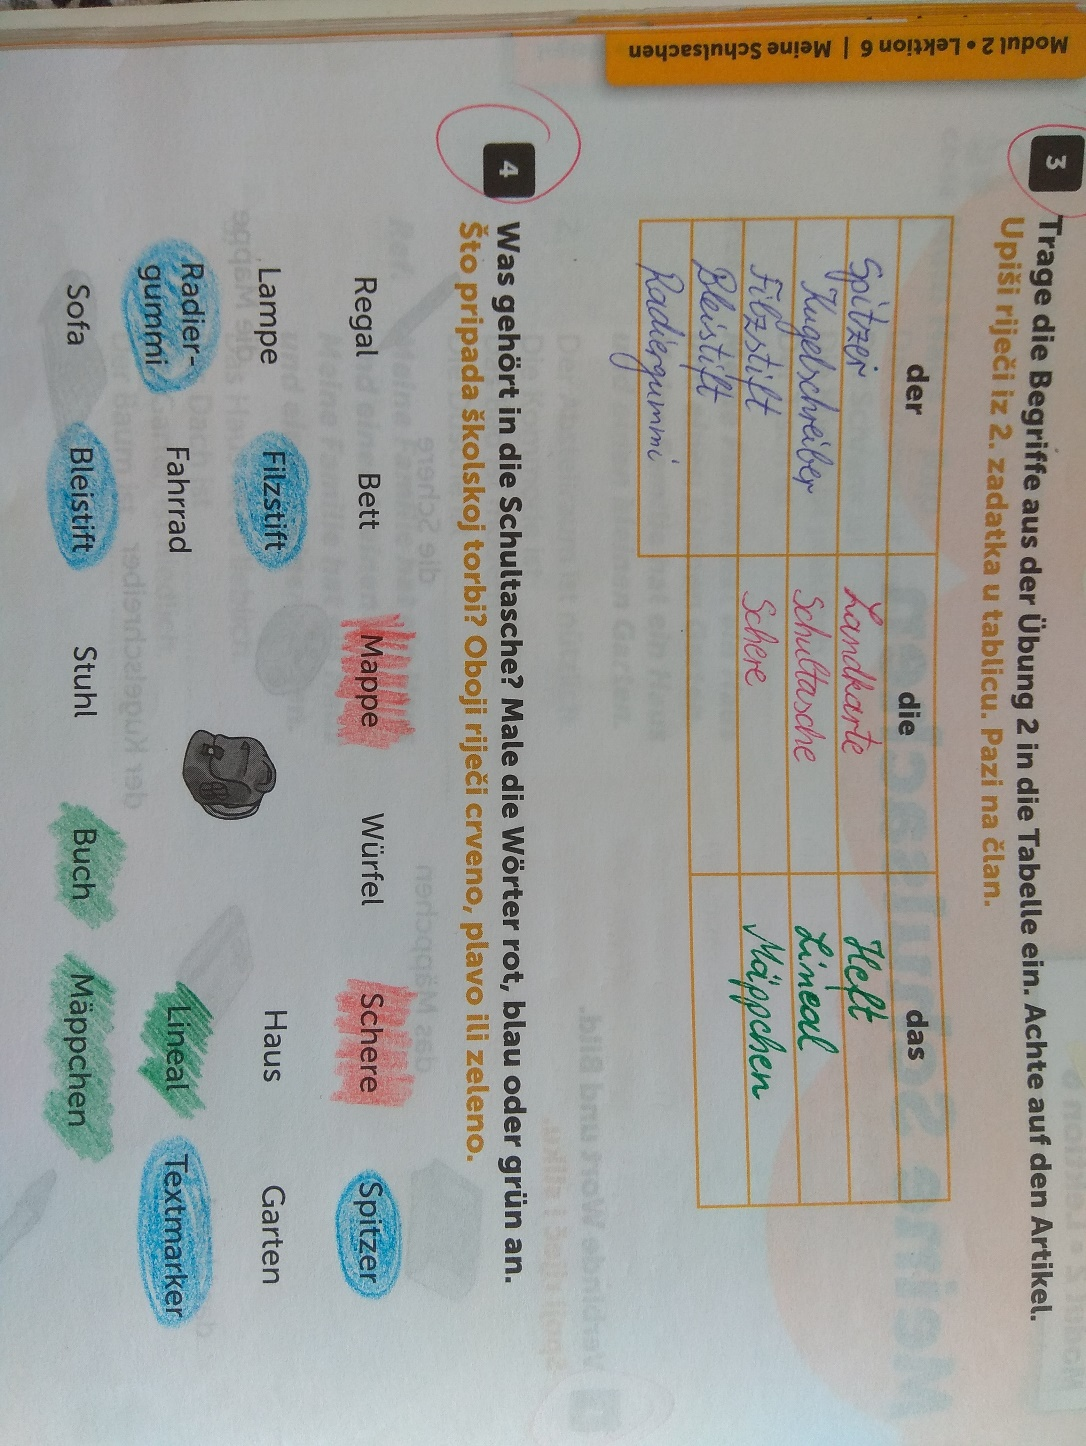 Modul 2 • Lektion 6 | Meine Schulsachen
3 Trage die Begriffe aus der Übung 2 in die Tabelle ein. Achte auf den Artikel.
Upiši riječi iz 2. zadatka u tablicu. Pazi na član.
der die das
Spitzer Landkarte Heft
Kugelschreiber Schultasche Lineal
Filzstift Schere Mäppchen
Bleistift
Radiergummi
4 Was gehört in die Schultasche? Male die Wörter rot, blau oder grün an.
Što pripada školskoj torbi? Oboji riječi crveno, plavo ili zeleno.
Regal Bett Mappe Würfel Schere Spitzer
Lampe Filzstift Haus Garten
Radier-
gummi Fahrrad Lineal Textmarker
Sofa Bleistift Stuhl Buch Mäppchen